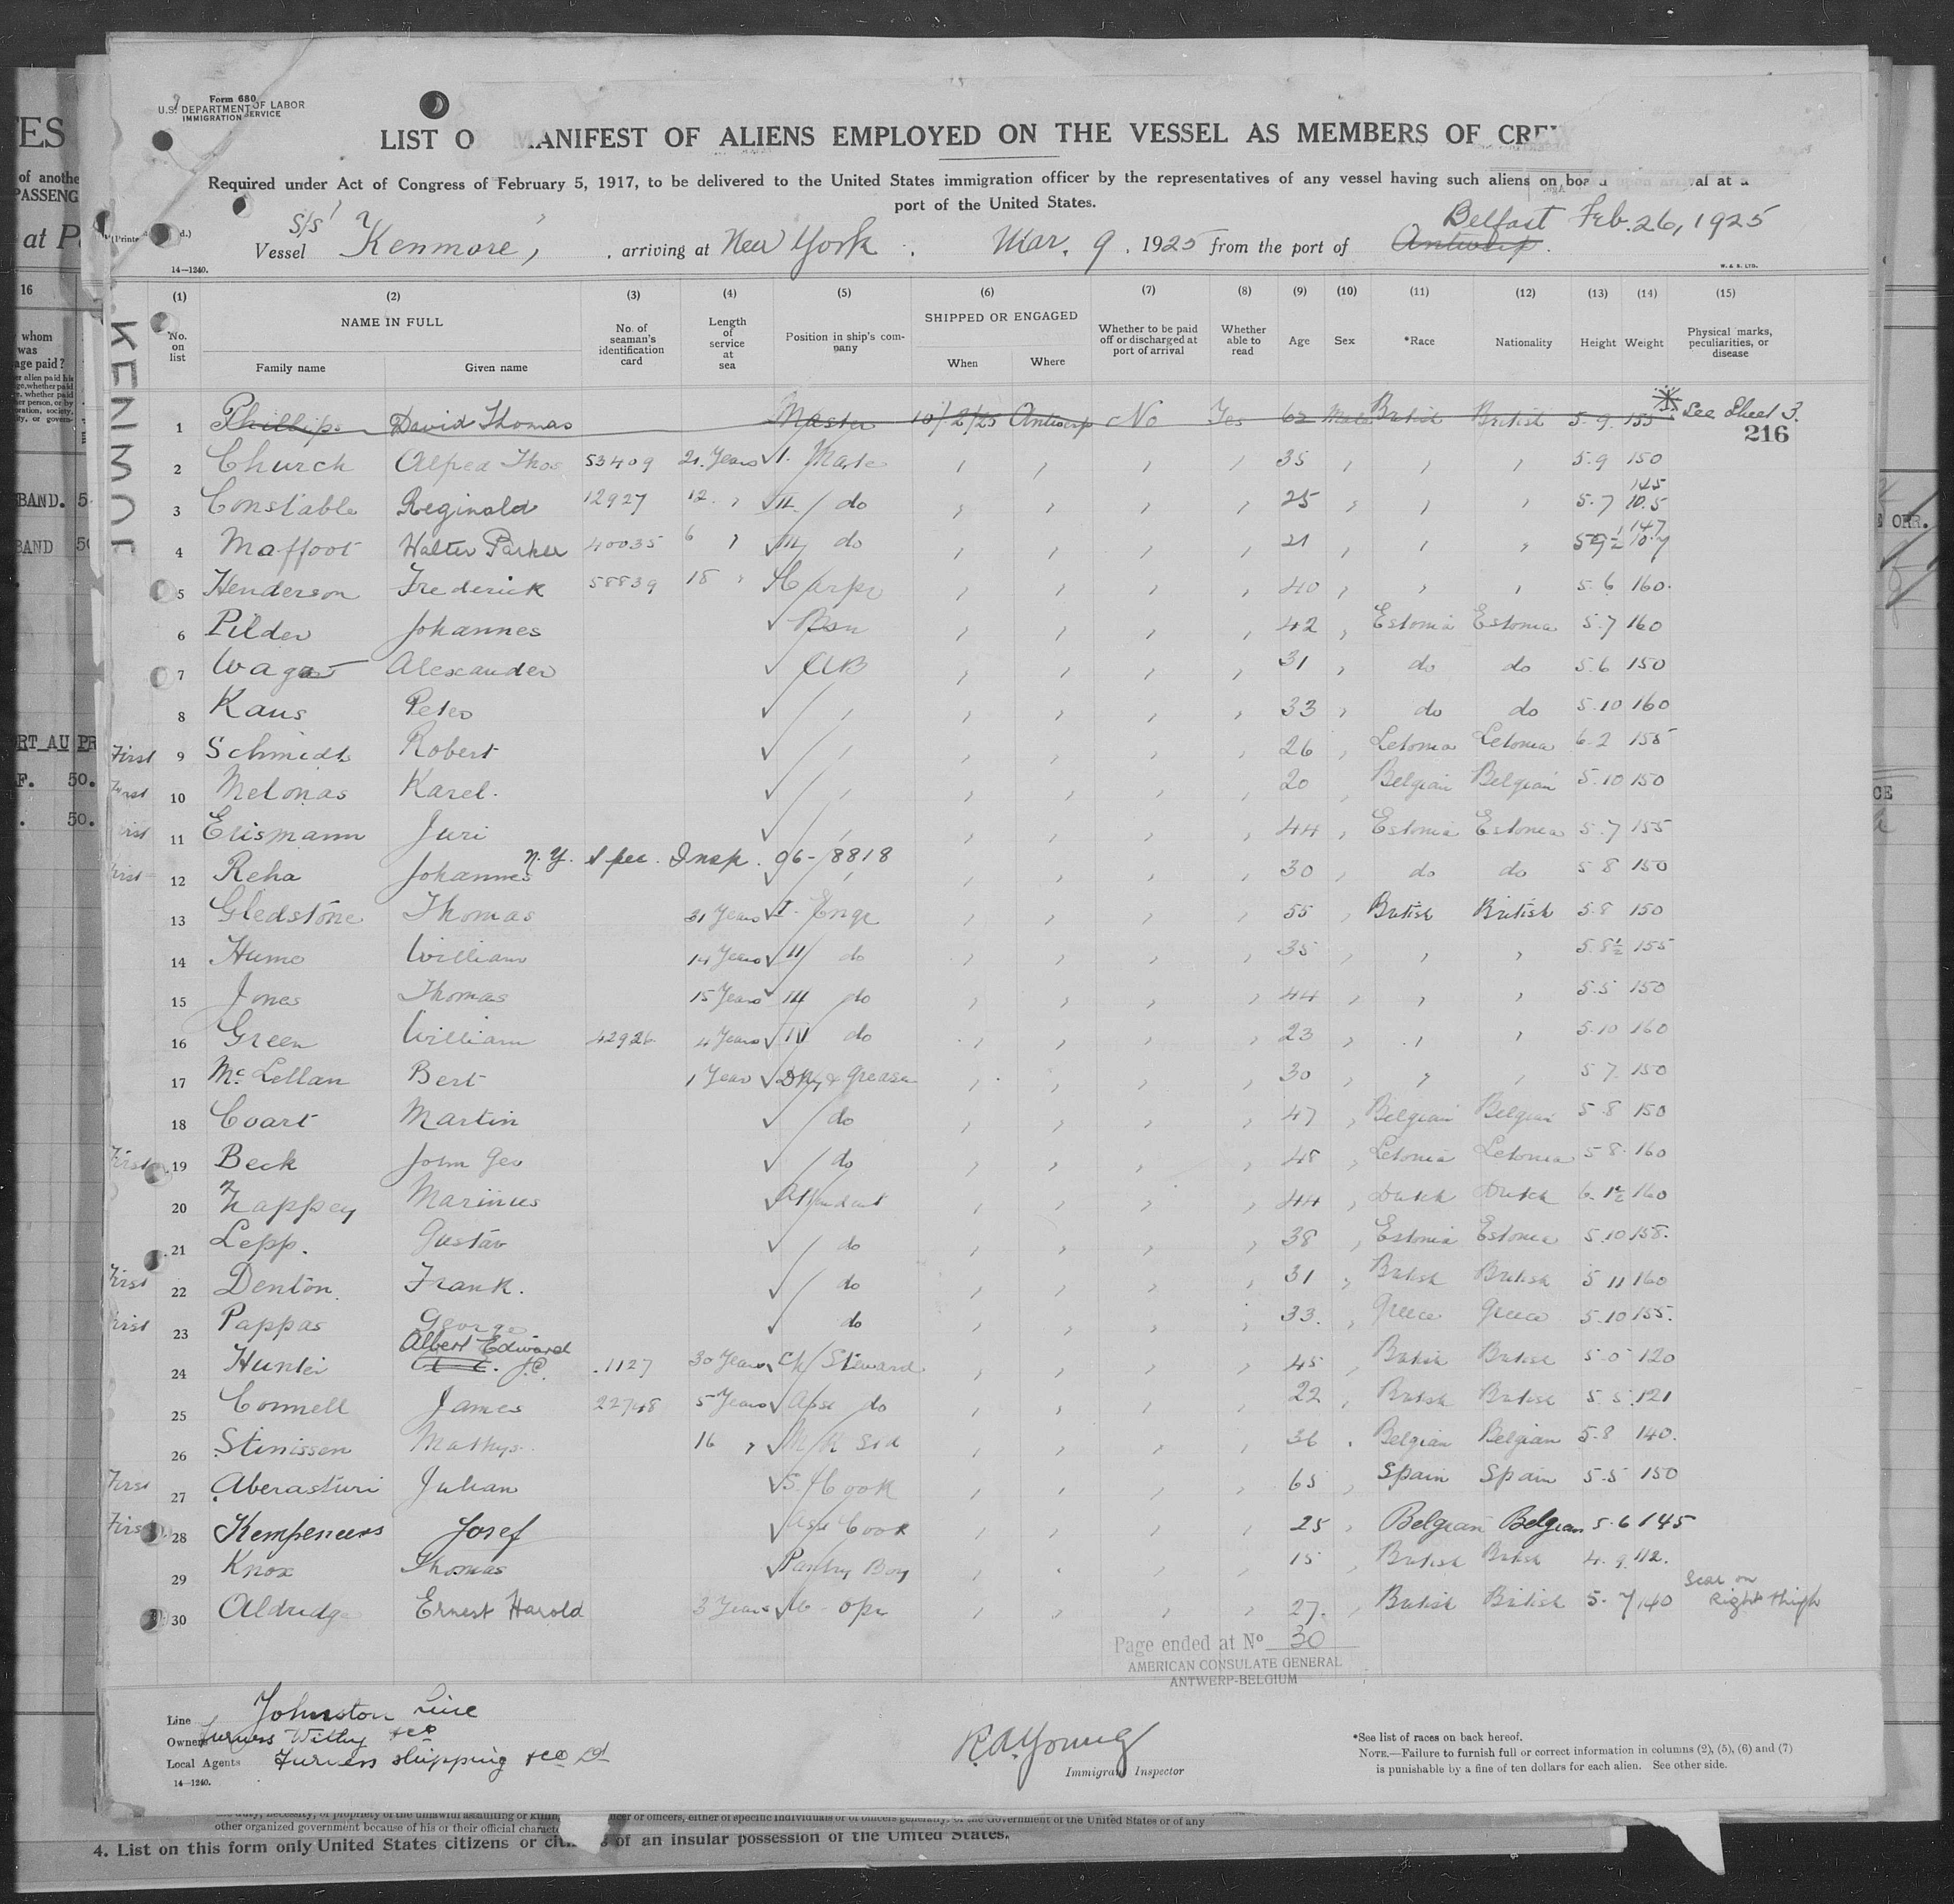 Form 680
U.S. DEPARTMENT OF LABOR
IMMIGRATION SERVICE
LIST O MANIFEST OF ALIENS EMPLOYED ON THE VESSEL AS MEMBERS OF CRE
Required under Act of Congress of February 5, 1917, to be delivered to the United States immigration officer by the representatives of any vessel having such aliens on board upon arrival at a
port of the United States.
Belfast Feb. 26, 1925
Vessel S/S Kenmore, arriving at New York. Mar. 9, 1925 from the port of Antwerp.
14—1240.
W. & S. LTD.
KENMOR
(1) (2) (3) (4) (5) (6) (7) (8) (9) (10) (11) (12) (13) (14) (15)
No. on list NAME IN FULL Family name Given name No. of seaman's identification card Length of service at sea Position in ship's company SHIPPED OR ENGAGED When Where Whether to be paid off or discharged at port of arrival Whether able to read Age Sex *Race Nationality Height Weight Physical marks, peculiarities, or disease
1 Phillips David Thomas Master 10/2/25 Antwerp No Yes 62 Male British British 5.9 155 See Sheet 3.
216
2 Church Alfred Thos 53409 21 Years I. Mate , , , , 35 , , , 5.9 150
3 Constable Reginald 12927 12 , II do , , , , 25 , , , 5.7 10.5 145
4 Maffoot Walter Parker 40035 6 , III do , , , , 21 , , , 5 9½ 10.7 147
5 Henderson Frederick 58839 18 , Carpr , , , , 40 , , , 5.6 160.
6 Pilder Johannes Bsn , , , , 42 , Estonia Estonia 5.7 160
7 Alexander AB , , , , 31 , do do 5.6 150
8 Kaus Peter , , , , , 33 , do do 5.10 160
First 9 Schmidt Robert , , , , , 26 , Letonia Letonia 6.2 155
First 10 Melonas Karel. , , , , , 20 , Belgian Belgian 5.10 150
First 11 Erismann Juri , , , , , 44 , Estonia Estonia 5.7 155
N.Y. Spec. Insp. 96-/8818
First 12 Reha Johannes , , , , , 30 , do do 5 8 150
13 Gledstone Thomas 31 Years I. Engr , , , , 55 , British British 5.8 150
14 Hume William 14 Years II do , , , , 35 , , , 5.8½ 155
15 Jones Thomas 15 Years III do , , , , 44 , , , 5.5 150
16 Green William 42926 4 Years IV do , , , , 23 , , , 5.10 160
17 McLellan Bert 1 Year Dky & Greaser , , , , 30 , , , 5 7. 150
18 Coart Martin do , , , , 47 , Belgian Belgian 5.8 150
First 19 Beck John Geo do , , , , 48 , Letonia Letonia 5 8. 160
20 Nappey Marinus Attendent , , , , 44 , Dutch Dutch 6.1½ 160
21 Lepp. Gustav do , , , , 38 , Estonia Estonia 5.10 158.
First 22 Denton Frank. do , , , , 31 , British British 5 11 160
First 23 Pappas George do , , , , 33. , Greece Greece 5.10 155.
24 Hunter Albert Edward .1127 30 Years Ch/ Steward , , , , 45 , British British 5.5 120
25 Connell James 22748 5 Years Asst do , , , , 22 , British British 5.5. 121
26 Stinissen Mathys 16 , M/R Std , , , , 36 . Belgian Belgian 5.8 140.
First 27 Aberasturi Julian S. / Cook , , , , 65 , Spain Spain 5.5 150
First 28 Kempeneers Josef Asst Cook , , , , 25 , Belgian Belgian 5.6 145
29 Knox Thomas Pantry Boy , , , , 15 , British British 4.9 112.
30 Aldridge Ernest Harold 3 Years W- opr , , , , 27. , British British 5.7 140 Scar on Right thigh
Page ended at No 30
AMERICAN CONSULATE GENERAL
ANTWERP-BELGIUM
Line Johnston Line
Owners Furness Withy & Co
Local Agents Furness Shipping & Co Ltd
14—1240.
R.A. Young
Immigrant Inspector
*See list of races on back hereof.
NOTE.—Failure to furnish full or correct information in columns (2), (5), (6) and (7)
is punishable by a fine of ten dollars for each alien. See other side.
other organized government because of his or their official character
4. List on this form only United States citizens or citizens of an insular possession of the United States.